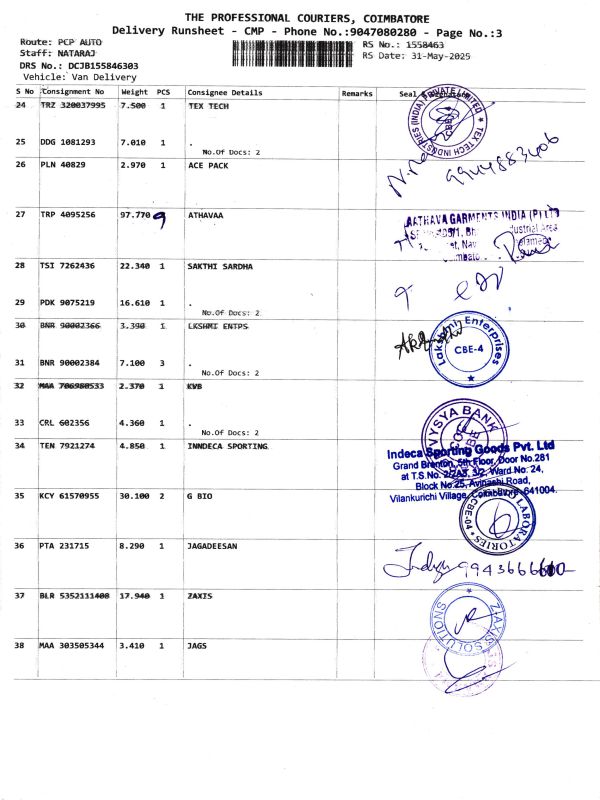 THE PROFESSIONAL COURIERS, COIMBATORE
Delivery Runsheet - CMP - Phone No.:9047080280 - Page No.:3
Route: PCP AUTO
RS No.: 1558463
Staff: NATARAJ
RS Date: 31-May-2025
DRS No.: DCJB155846303
Vehicle: Van Delivery
S No Consignment No Weight PCS Consignee Details Remarks Seal &
24 TRZ 320037995 7.500 1 TEX TECH
TEX TECH INDUSTRIES (INDIA) PRIVATE LIMITED
25 DDG 1081293 7.010 1 .
No.Of Docs: 2
26 PLN 40829 2.970 1 ACE PACK
9944883406
27 TRP 4095256 97.770 9 ATHAVAA
AATHAVA GARMENTS INDIA (P) LTD
28 TSI 7262436 22.340 1 SAKTHI SARDHA
29 PDK 9075219 16.610 1 .
No.Of Docs: 2
30 BNR 90002366 3.390 1 LKSHMI ENTPS
Lakshmi Enterprises
CBE-4
31 BNR 90002384 7.100 3 .
No.Of Docs: 2
32 MAA 706980533 2.370 1 KVB
VYSYA BANK
33 CRL 602356 4.360 1 .
No.Of Docs: 2
34 TEN 7921274 4.850 1 INNDECA SPORTING
Indeca Sporting Goods Pvt. Ltd
Grand Brenton, 5th Floor, Door No.281
at T.S.No. 2/2A3, 3/2, Ward No. 24,
Block No.25, Avinashi Road,
Vilankurichi Village, Coimbatore-641004.
35 KCY 61570955 30.100 2 G BIO
LABORATORIES
CBE-04
36 PTA 231715 8.290 1 JAGADEESAN
37 BLR 5352111408 17.940 1 ZAXIS
ZAXIS SOLUTIONS
38 MAA 303505344 3.410 1 JAGS